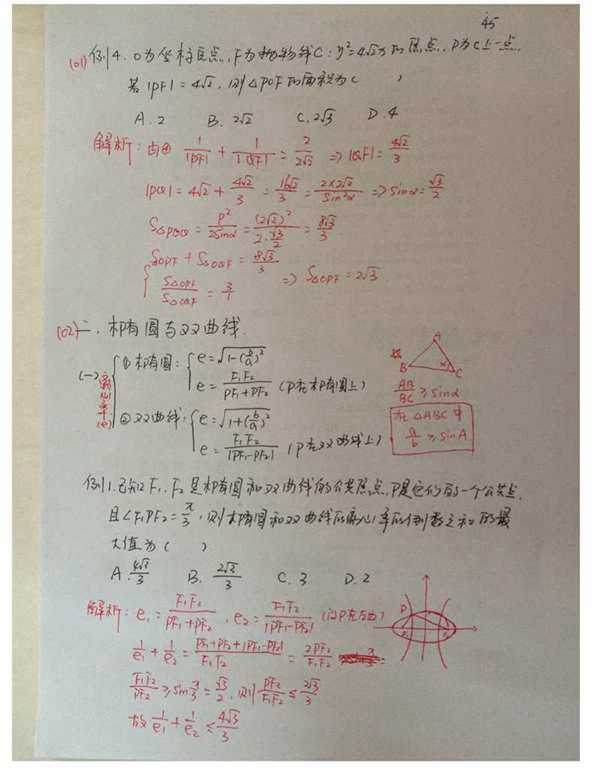 45
(01) 例4. O为坐标原点, F为抛物线C: y²=4√2x的焦点, P为C上一点,
若|PF|=4√2, 则△POF的面积为( )
A. 2 B. 2√2 C. 2√3 D. 4
解析: 由 1/|PF| + 1/|QF| = 2/2√2 => |QF| = 4√2/3
|PQ| = 4√2 + 4√2/3 = 16√2/3 = 2×2√2/sin²α => sinα = √3/2
S△POQ = P²/2sinα = (2√2)²/2·√3/2 = 8√3/3
{ S△OPF + S△OQF = 8√3/3
S△OPF/S△OQF = 3/1 => S△OPF = 2√3
(02) 二、椭圆与双曲线.
(一) 离心率(e)
① 椭圆: { e = √1-(b/a)²
e = F₁F₂/PF₁+PF₂ (P在椭圆上)
② 双曲线: { e = √1+(b/a)²
e = F₁F₂/|PF₁-PF₂| (P在双曲线上)
A
B α C
AB/BC ≥ sinα
在△ABC中
a/b ≥ sinA
例1. 已知F₁、F₂是椭圆和双曲线的公共焦点, P是它们的一个公共点.
且∠F₁PF₂ = π/3, 则椭圆和双曲线的离心率的倒数之和的最
大值为( )
A. 4√3/3 B. 2√3/3 C. 3 D. 2
解析: e₁ = F₁F₂/PF₁+PF₂, e₂ = F₁F₂/|PF₁-PF₂| (设P在左边)
P
1/e₁ + 1/e₂ = PF₁+PF₂+|PF₁-PF₂|/F₁F₂ = 2PF₂/F₁F₂
F₁F₂/PF₂ ≥ sinπ/3 = √3/2, 则 PF₂/F₁F₂ ≤ 2√3/3
故 1/e₁ + 1/e₂ ≤ 4√3/3